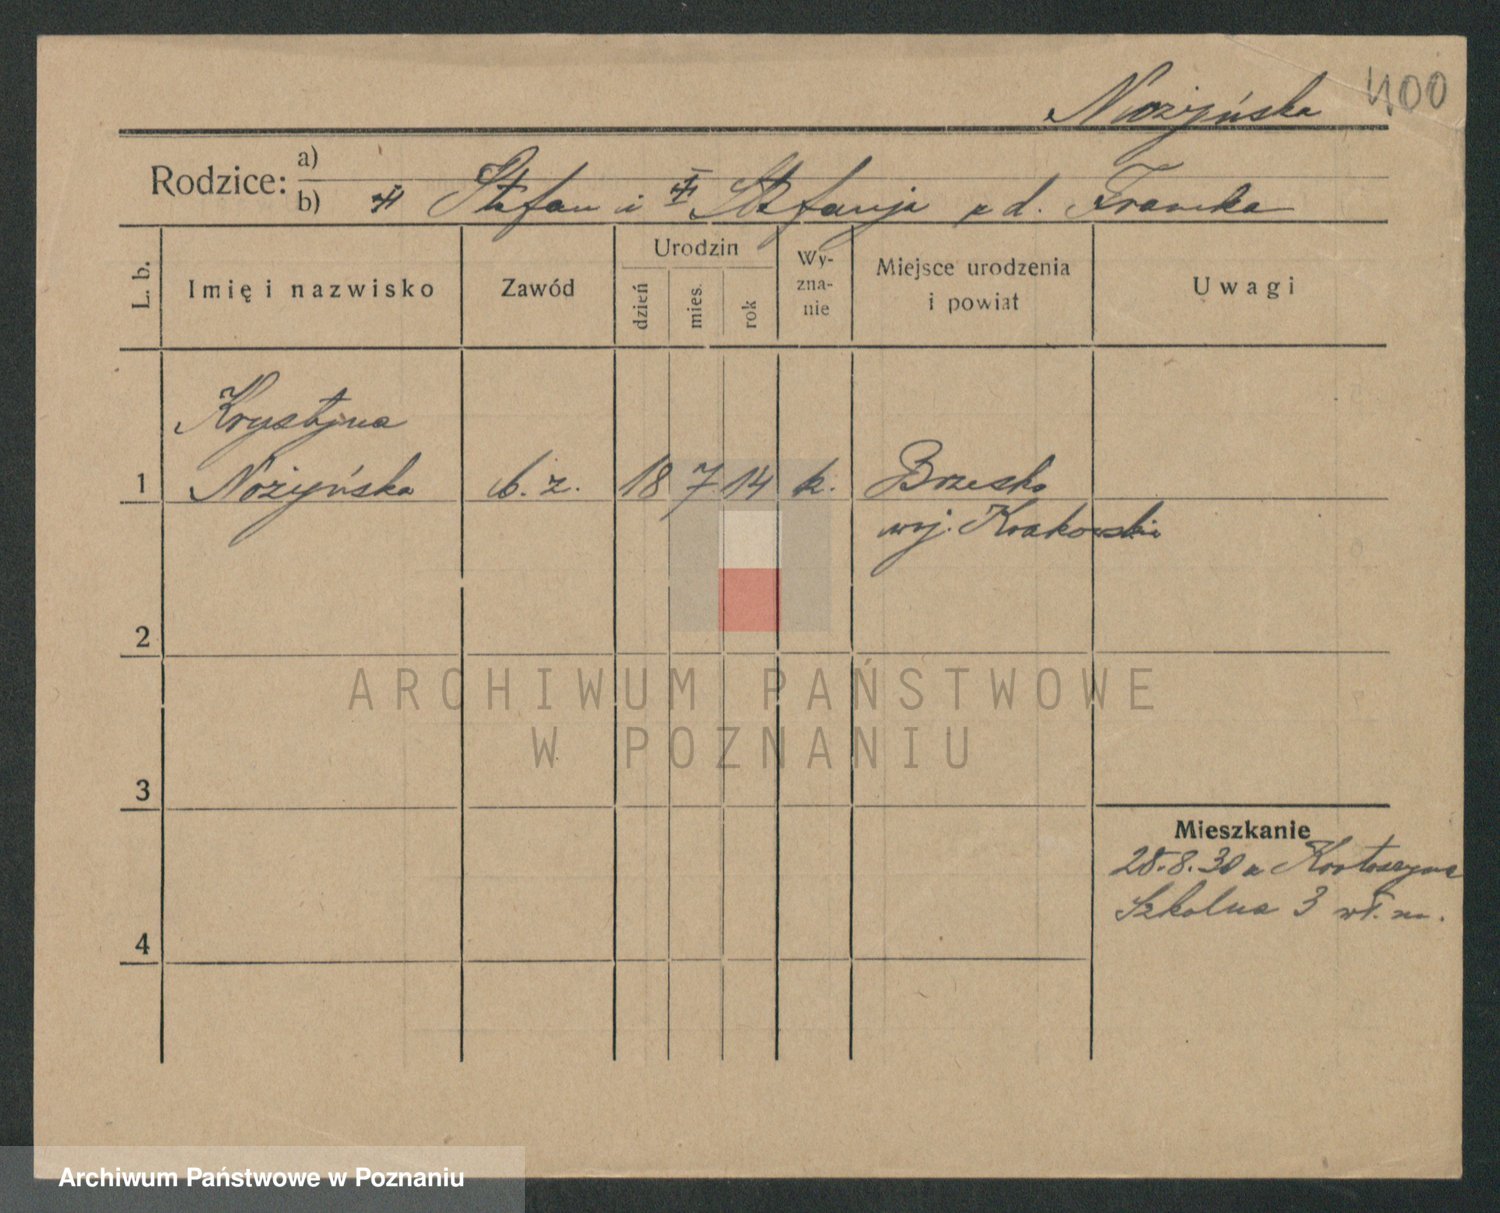 Nożyńska 400
Rodzice: a)
b) Stefan i Stefanja z d. Franka
L. b.
Imię i nazwisko
Zawód
Urodzin
dzień
mies.
rok
Wy-
zna-
nie
Miejsce urodzenia
i powiat
Uwagi
Krystyna
1 Nożyńska b. z. 18 7 14 k. Brzesko
woj. Krakowskie
2
ARCHIWUM PAŃSTWOWE
W POZNANIU
3
Mieszkanie
28.8.30 z Krotoszyna
Szkolna 3 wł. m.
4
Archiwum Państwowe w Poznaniu